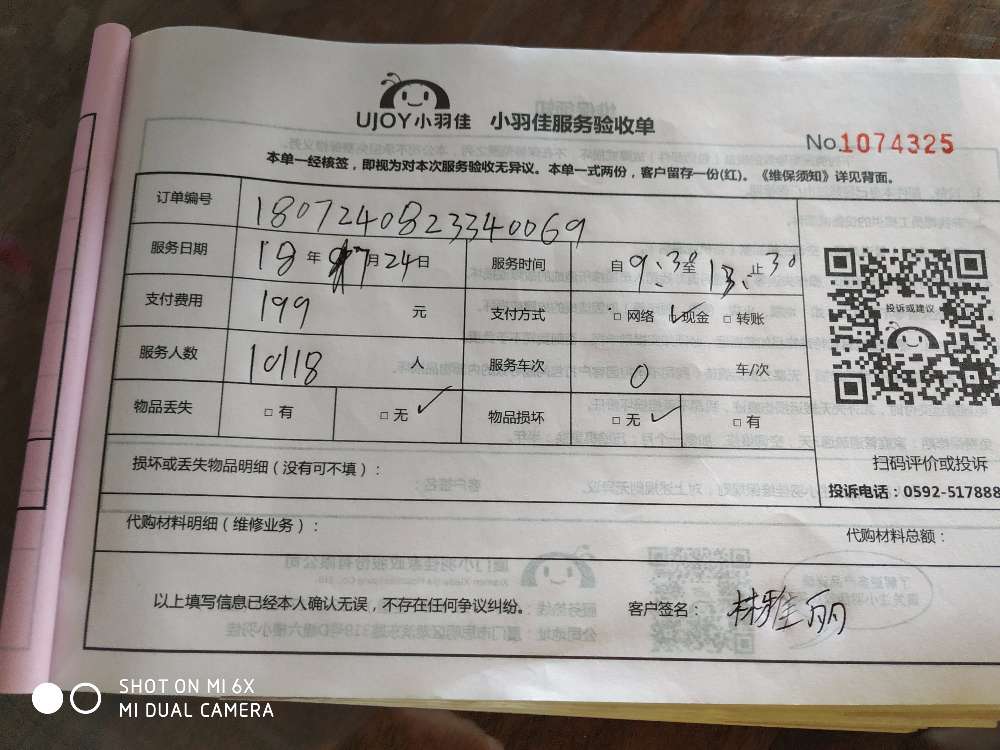 UJOY小羽佳 小羽佳服务验收单
No1074325
本单一经核签，即视为对本次服务验收无异议。本单一式两份，客户留存一份(红)。《维保须知》详见背面。
订单编号 1807240823340069
服务日期 18年7月24日 服务时间 自9:30至13:30止
支付费用 199元 支付方式 □网络 ✓现金 □转账
服务人数 10118人 服务车次 0 车/次
物品丢失 □有 □无✓ 物品损坏 □无✓ □有
投诉或建议
扫码评价或投诉
投诉电话：0592-517888
损坏或丢失物品明细（没有可不填）：
代购材料明细（维修业务）： 代购材料总额：
以上填写信息已经本人确认无误，不存在任何争议纠纷。 客户签名：林雅丽
SHOT ON MI 6X
MI DUAL CAMERA